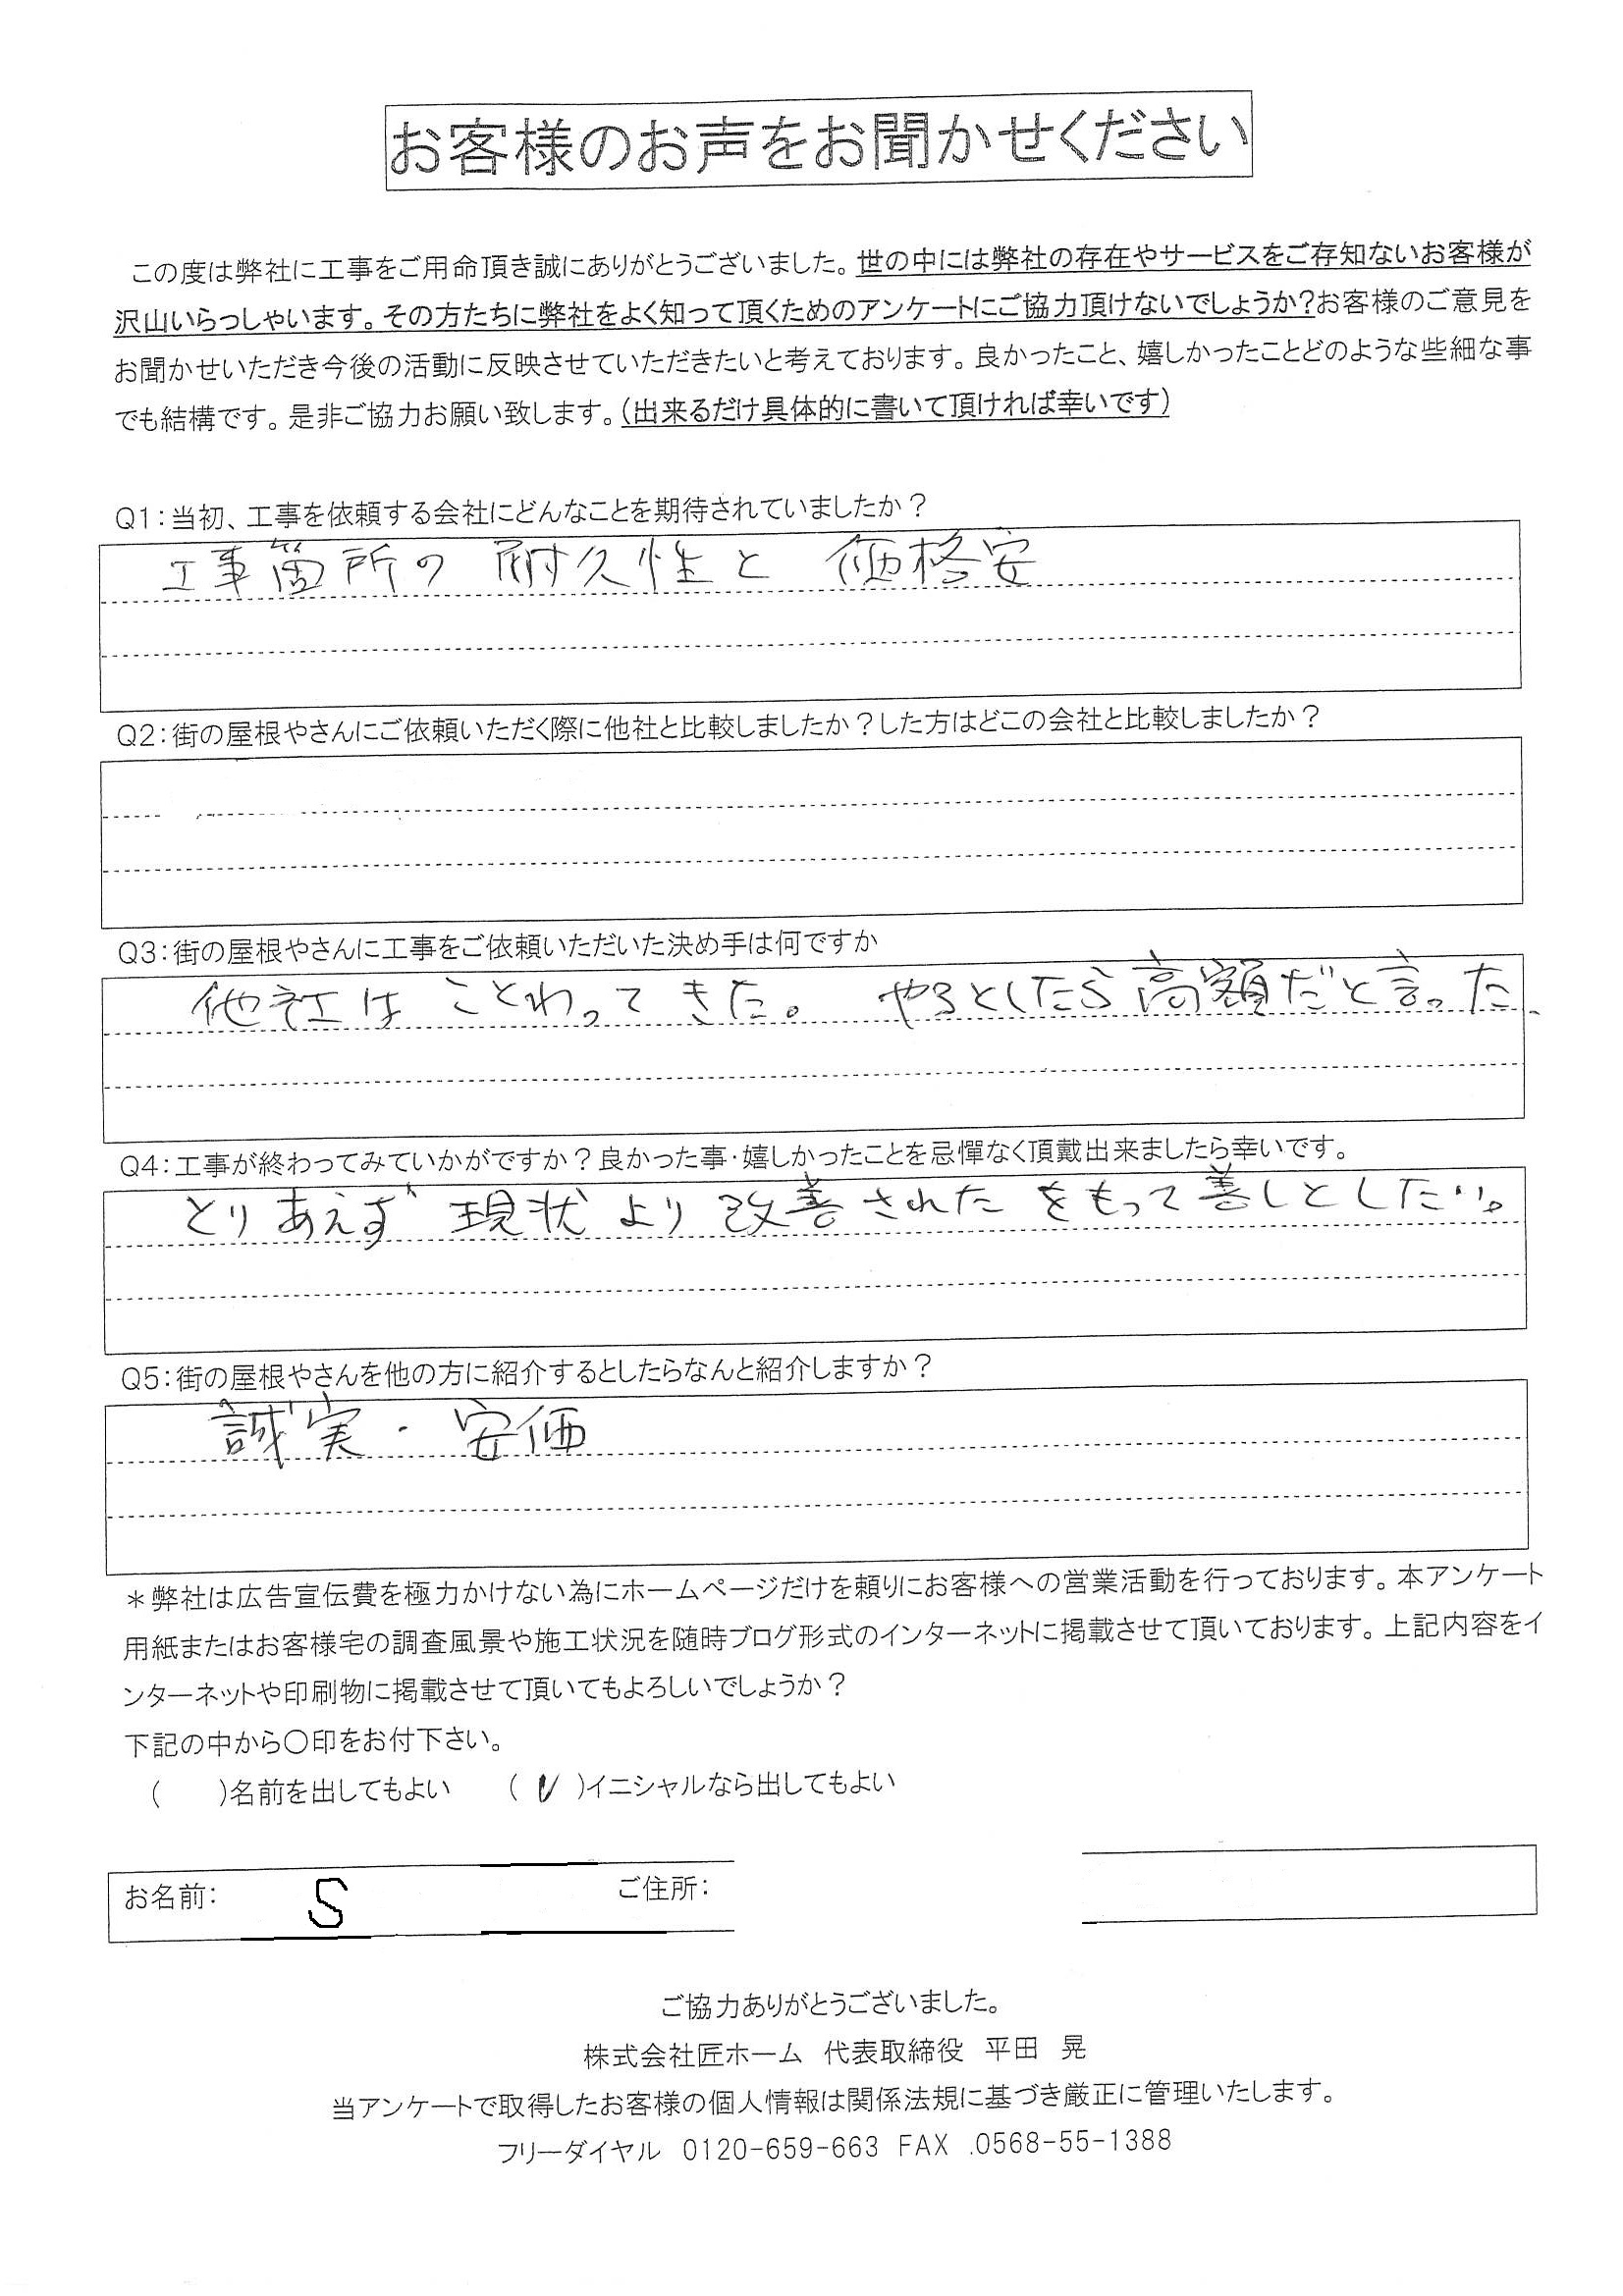 お客様のお声をお聞かせください
この度は弊社に工事をご用命頂き誠にありがとうございました。世の中には弊社の存在やサービスをご存知ないお客様が
沢山いらっしゃいます。その方たちに弊社をよく知って頂くためのアンケートにご協力頂けないでしょうか?お客様のご意見を
お聞かせいただき今後の活動に反映させていただきたいと考えております。良かったこと、嬉しかったことどのような些細な事
でも結構です。是非ご協力お願い致します。(出来るだけ具体的に書いて頂ければ幸いです)
Q1:当初、工事を依頼する会社にどんなことを期待されていましたか?
工事箇所の耐久性と 価格安
Q2:街の屋根やさんにご依頼いただく際に他社と比較しましたか?した方はどこの会社と比較しましたか?
Q3:街の屋根やさんに工事をご依頼いただいた決め手は何ですか
他社は ことわってきた。 やるとしたら高額だと言った、
Q4:工事が終わってみていかがですか?良かった事・嬉しかったことを忌憚なく頂戴出来ましたら幸いです。
とりあえず 現状より改善された をもって善しとしたい。
Q5:街の屋根やさんを他の方に紹介するとしたらなんと紹介しますか?
誠実・安価
*弊社は広告宣伝費を極力かけない為にホームページだけを頼りにお客様への営業活動を行っております。本アンケート
用紙またはお客様宅の調査風景や施工状況を随時ブログ形式のインターネットに掲載させて頂いております。上記内容をイ
ンターネットや印刷物に掲載させて頂いてもよろしいでしょうか?
下記の中から〇印をお付下さい。
( )名前を出してもよい (✓)イニシャルなら出してもよい
お名前: S ご住所:
ご協力ありがとうございました。
株式会社匠ホーム 代表取締役 平田 晃
当アンケートで取得したお客様の個人情報は関係法規に基づき厳正に管理いたします。
フリーダイヤル 0120-659-663 FAX .0568-55-1388